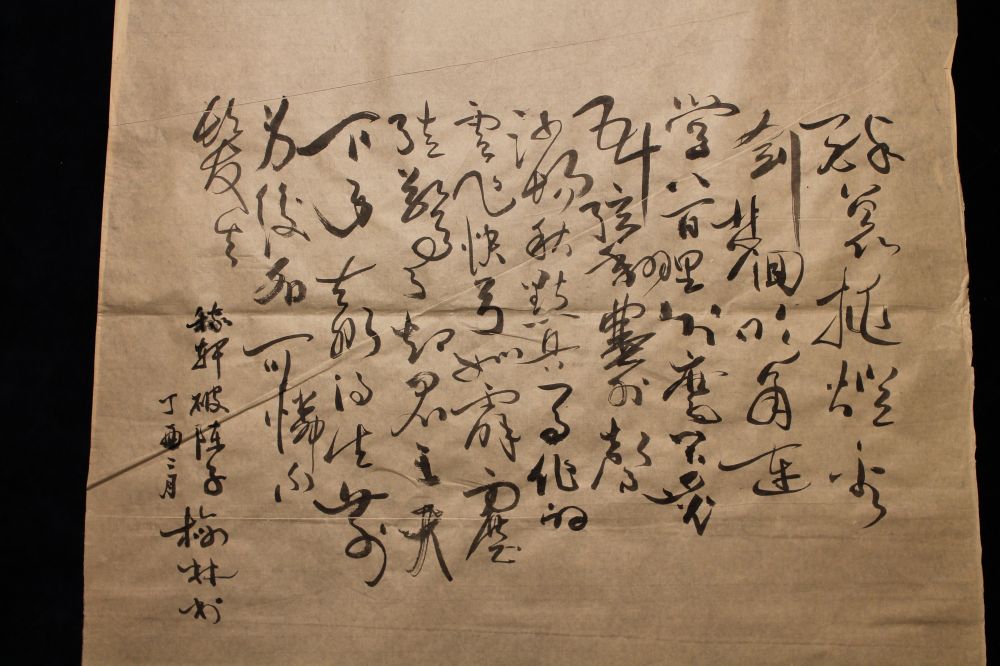 醉裏挑燈看
劍夢回吹角連
營八百里分麾下炙
五十弦翻塞外聲
沙場秋點兵馬作的
盧飛快弓如霹靂
弦驚了却君王天
下事贏得生前
身後名可憐白
髮生
稼軒破陣子 榆林书
丁酉二月